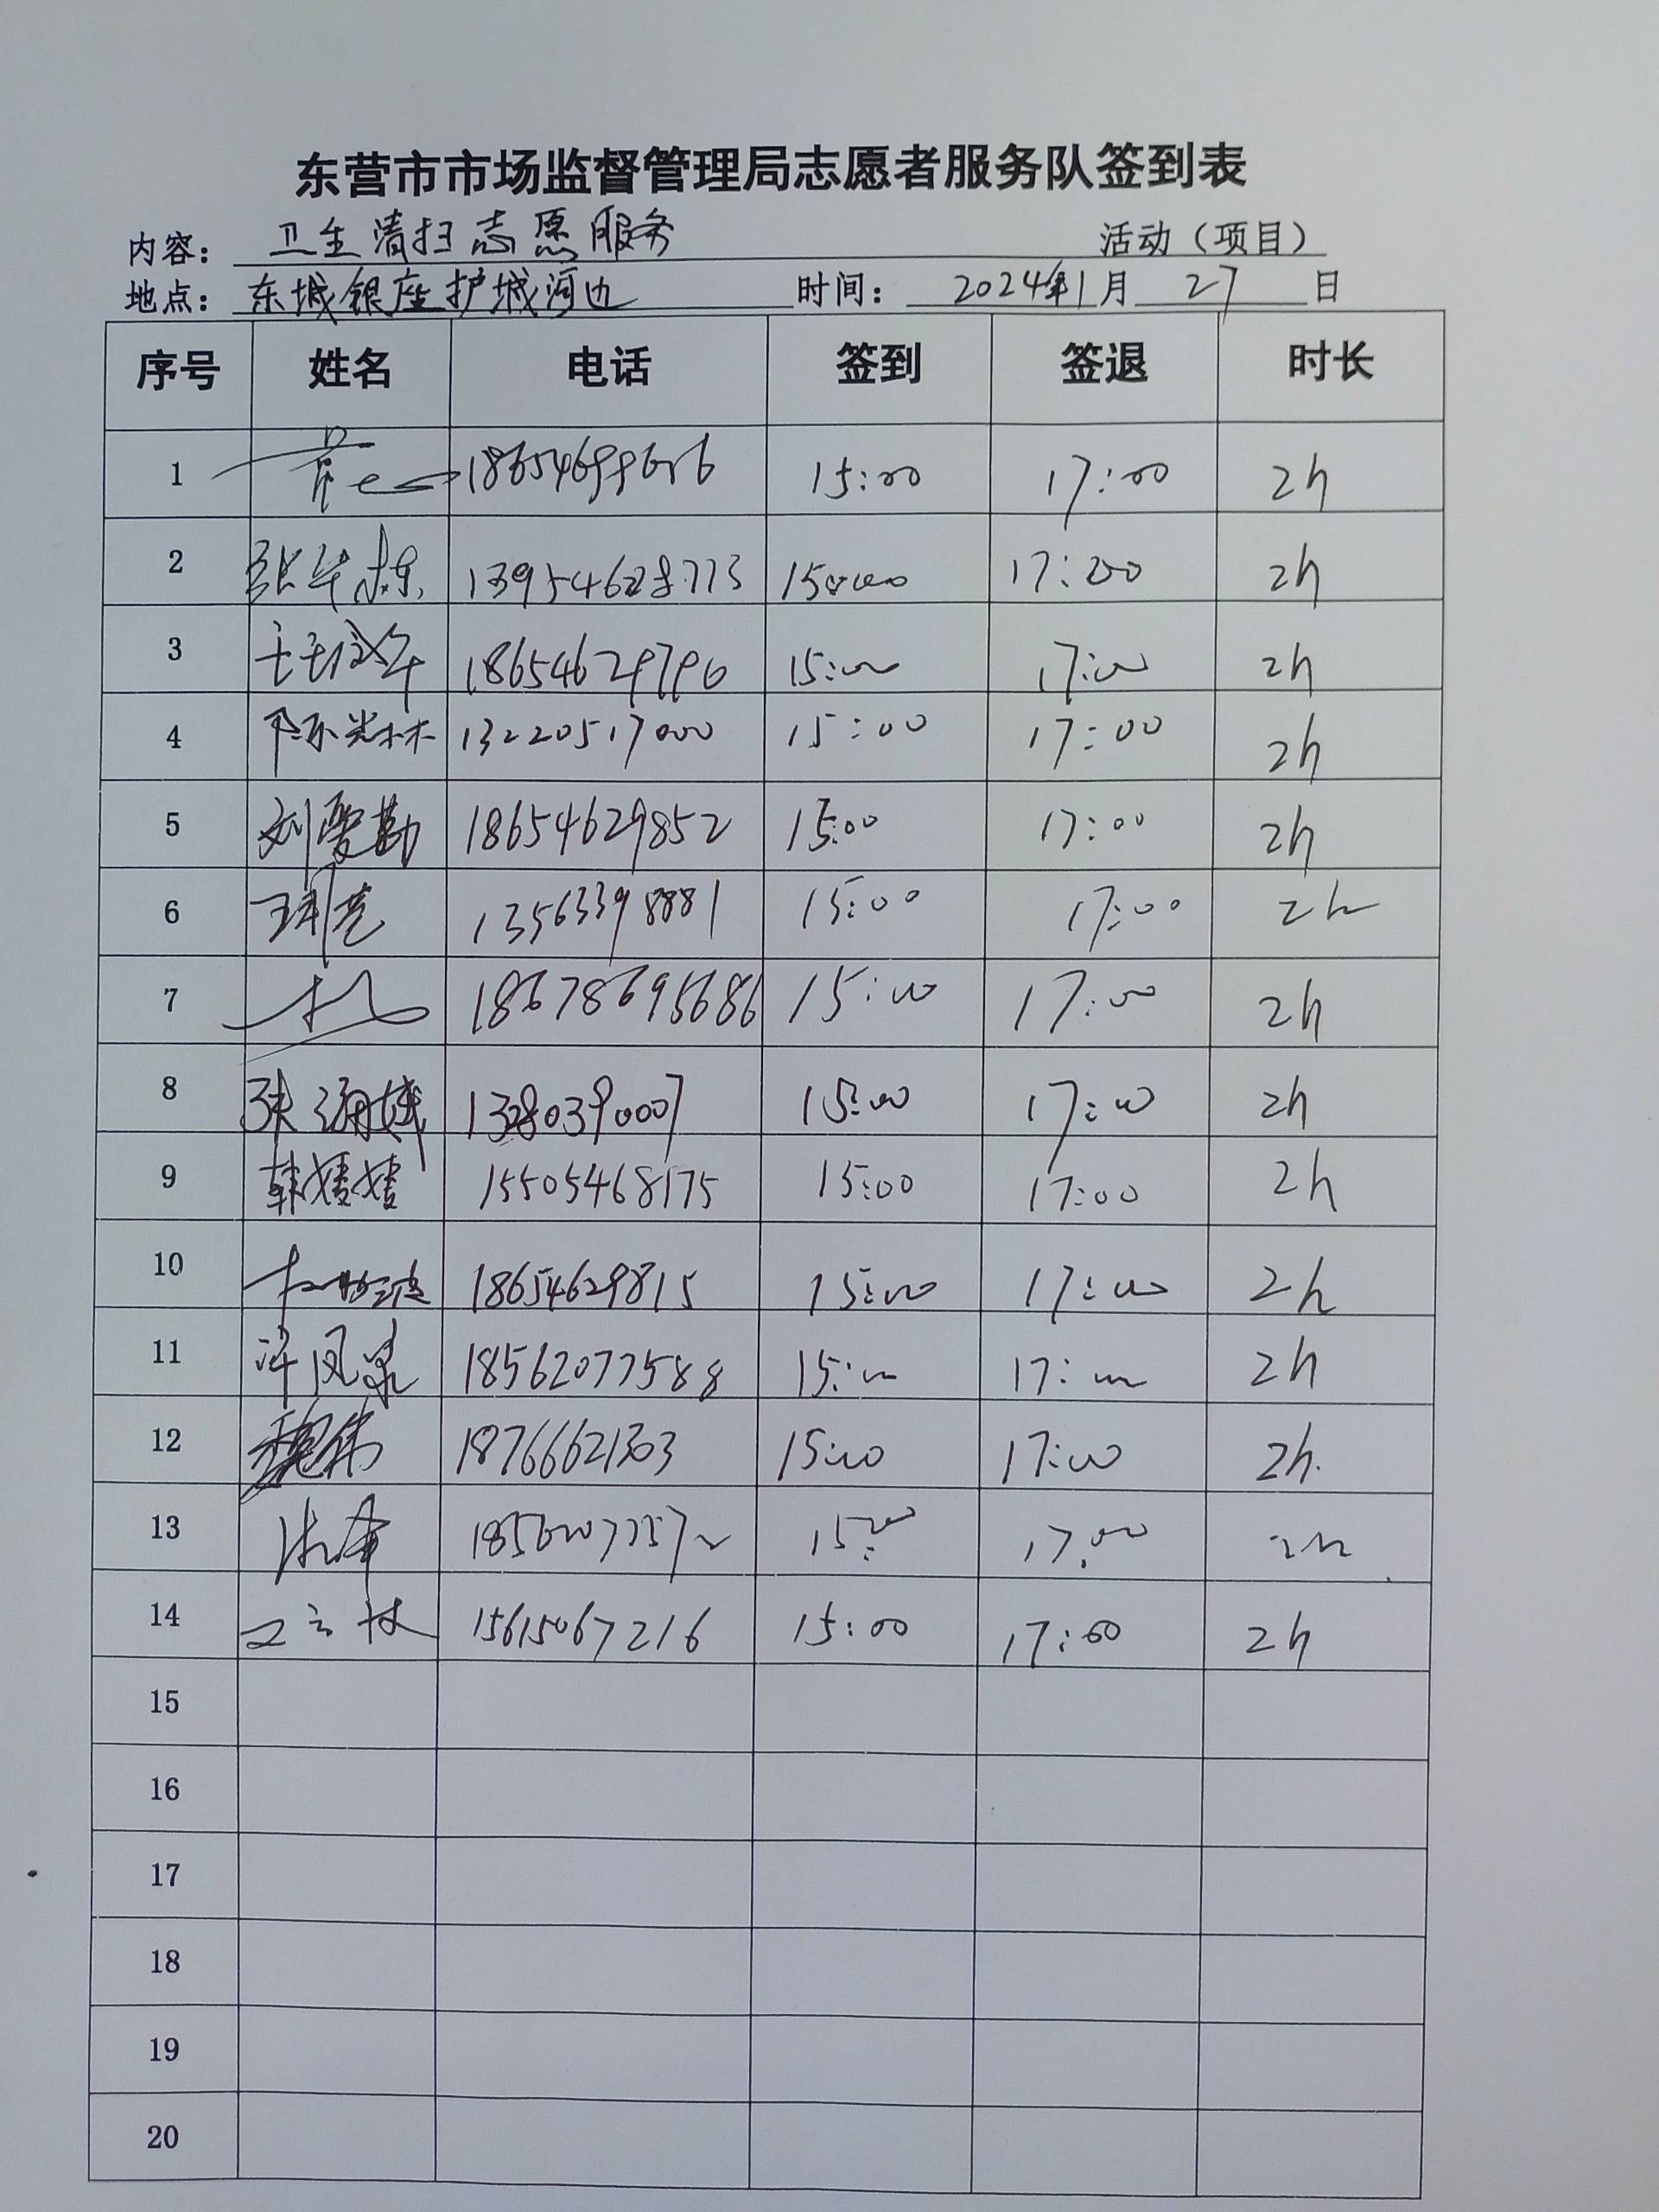 东营市市场监督管理局志愿者服务队签到表
内容: 卫生清扫志愿服务 活动（项目）
地点: 东城银座护城河边 时间: 2024年1月 27 日
序号 姓名 电话 签到 签退 时长
1 15:00 17:00 2h
2 13954628773 15:00 17:00 2h
3 18654629796 15:00 17:00 2h
4 陈光林 13220517000 15:00 17:00 2h
5 刘爱勤 18654629852 15:00 17:00 2h
6 13563398881 15:00 17:00 2h
7 18678695686 15:00 17:00 2h
8 15:00 17:00 2h
9 韩婧婧 15505468175 15:00 17:00 2h
10 18654629815 15:00 17:00 2h
11 许凤泉 18562077588 15:00 17:00 2h
12 魏伟 18766621303 15:00 17:00 2h.
13 15:00 17:00 2h
14 15615067216 15:00 17:00 2h
15
16
17
18
19
20